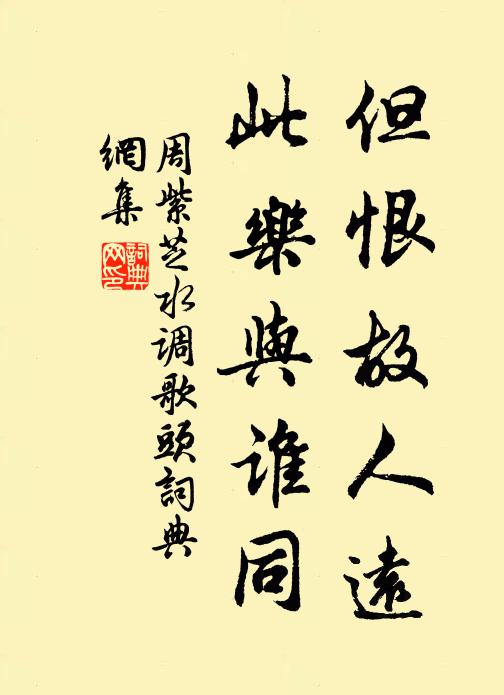 但恨故人遠
此樂與誰同
周紫芝水调歌頭詞典
網集
詞典网印